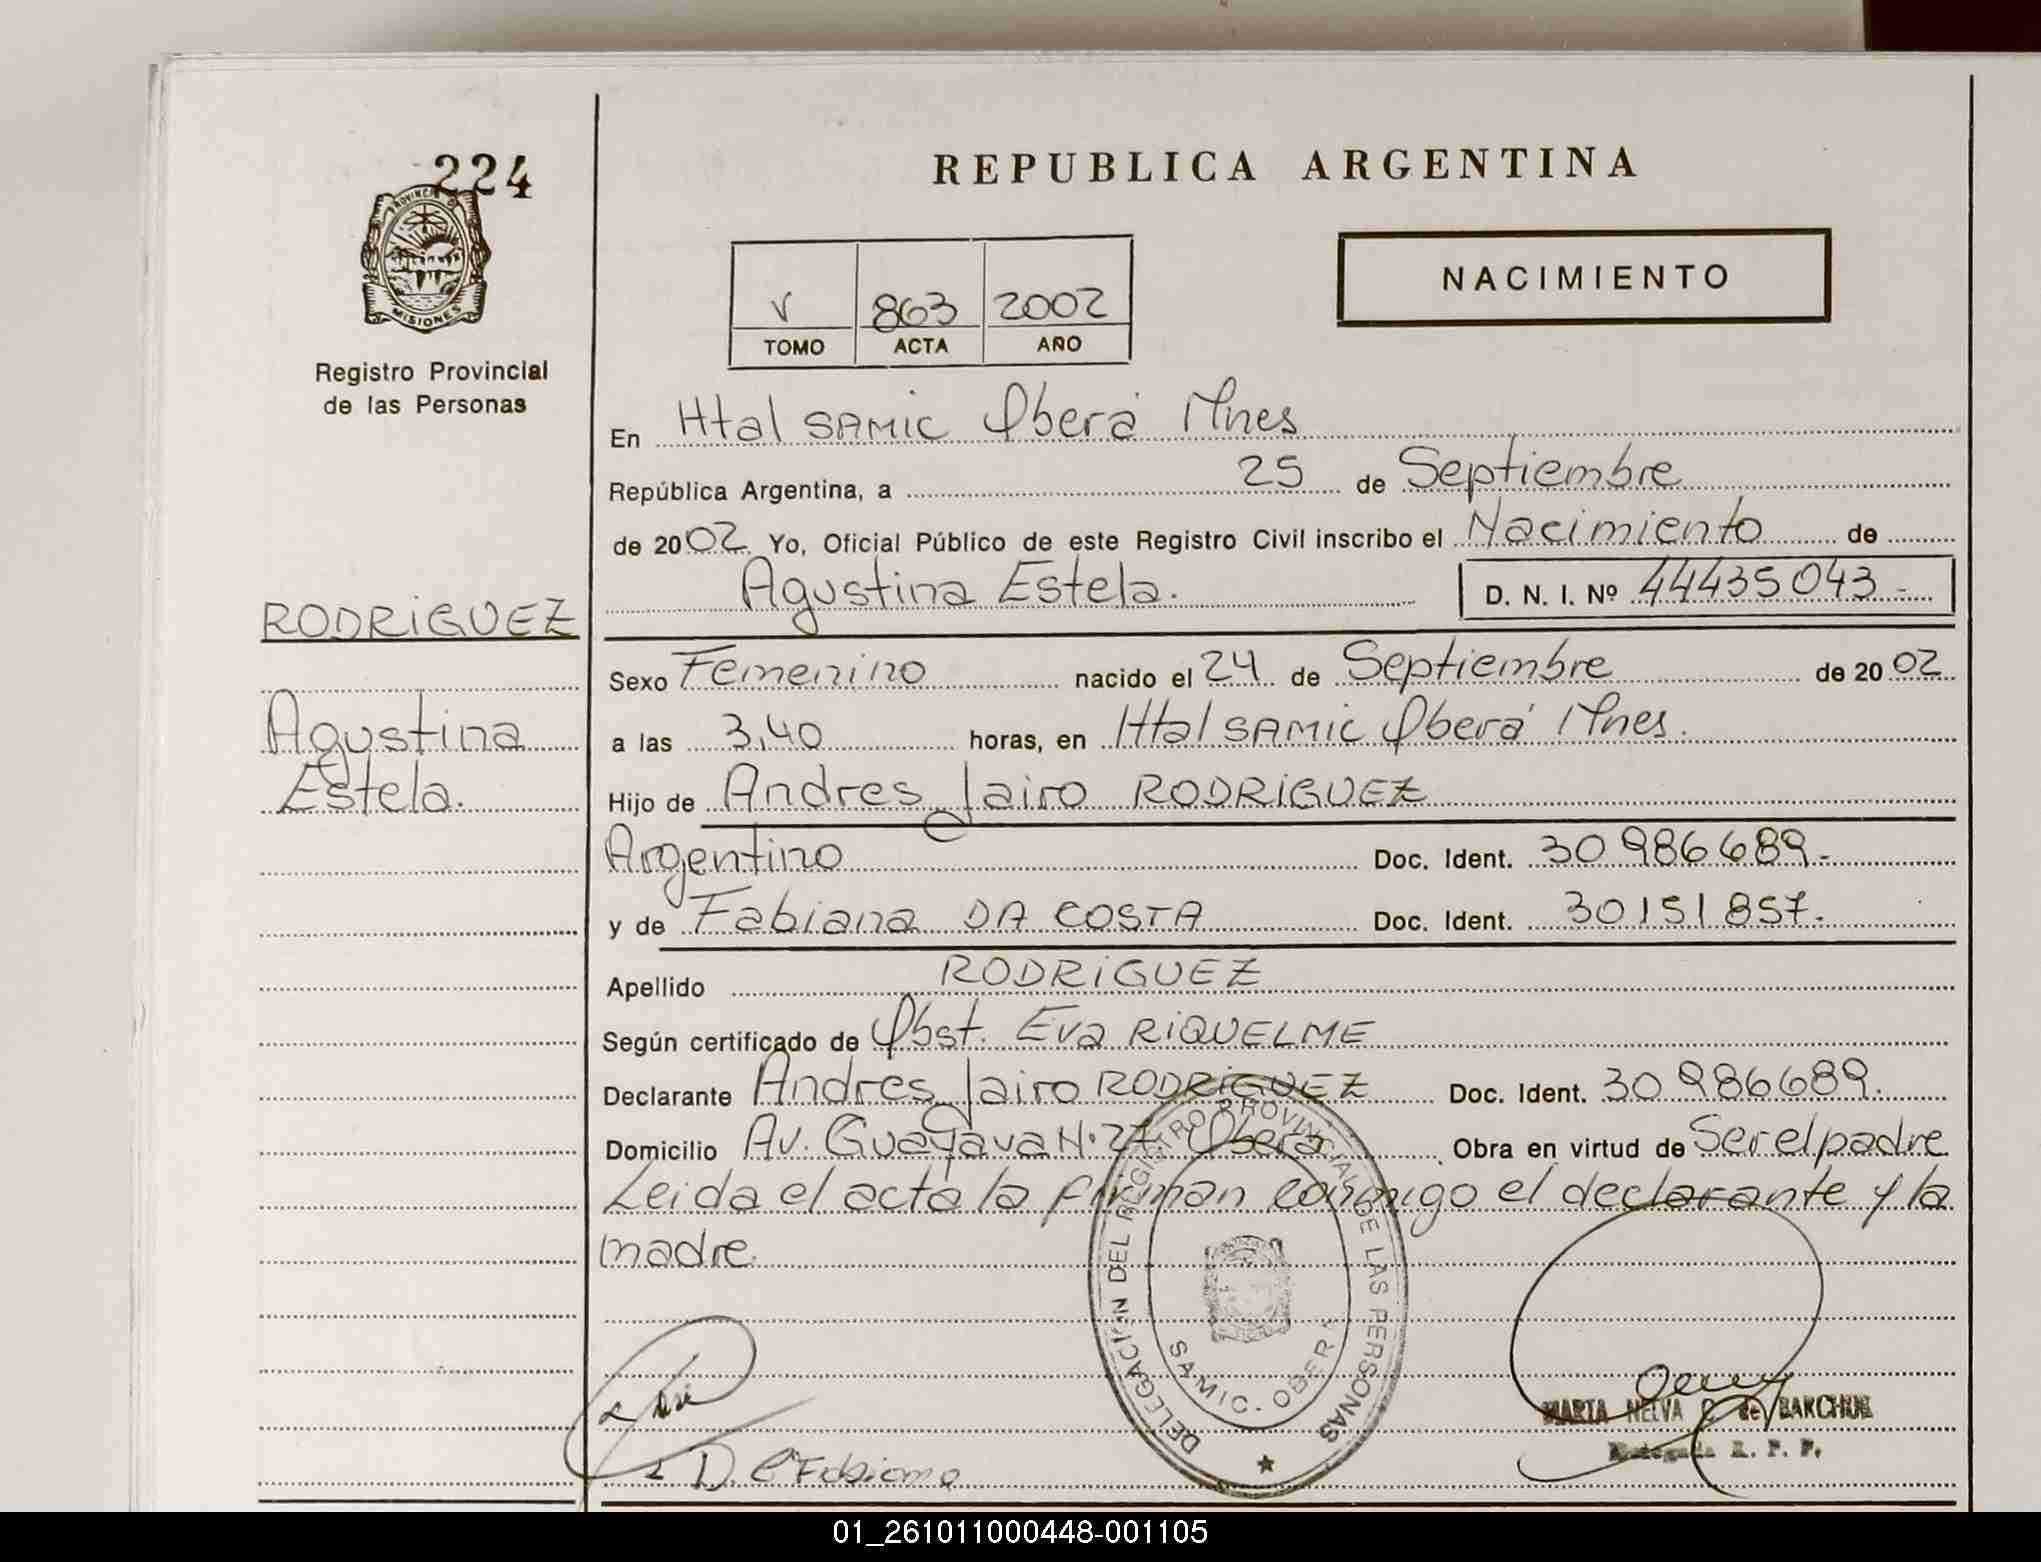 224
PROVINCIA DE
MISIONES
Registro Provincial
de las Personas
RODRIGUEZ
Agustina
Estela.
REPUBLICA ARGENTINA
NACIMIENTO
V 863 2002
TOMO ACTA AÑO
En Htal SAMIC Oberá Mnes
República Argentina, a 25 de Septiembre
de 2002 Yo, Oficial Público de este Registro Civil inscribo el Nacimiento de
Agustina Estela. D. N. I. Nº 44435043-
Sexo Femenino nacido el 24 de Septiembre de 2002
a las 3,40 horas, en Htal SAMIC Oberá Mnes.
Hijo de Andres Jairo RODRIGUEZ
Argentino Doc. Ident. 30986689.-
y de Fabiana DA COSTA Doc. Ident. 30151857.
Apellido RODRIGUEZ
Según certificado de Obst. Eva RIQUELME
Declarante Andres Jairo RODRIGUEZ Doc. Ident. 30986689.
Domicilio Av. Guayava N° 27. Oberá Obra en virtud de Ser el padre
Leida el acta la firman conmigo el declarante y la
madre.
DELEGACION DEL REGISTRO PROVINCIAL DE LAS PERSONAS
SAMIC. OBERA
D. C Fabiana
MARTA NELVA C de BAKCHUK
Delegada R. P. P.
01_261011000448-001105